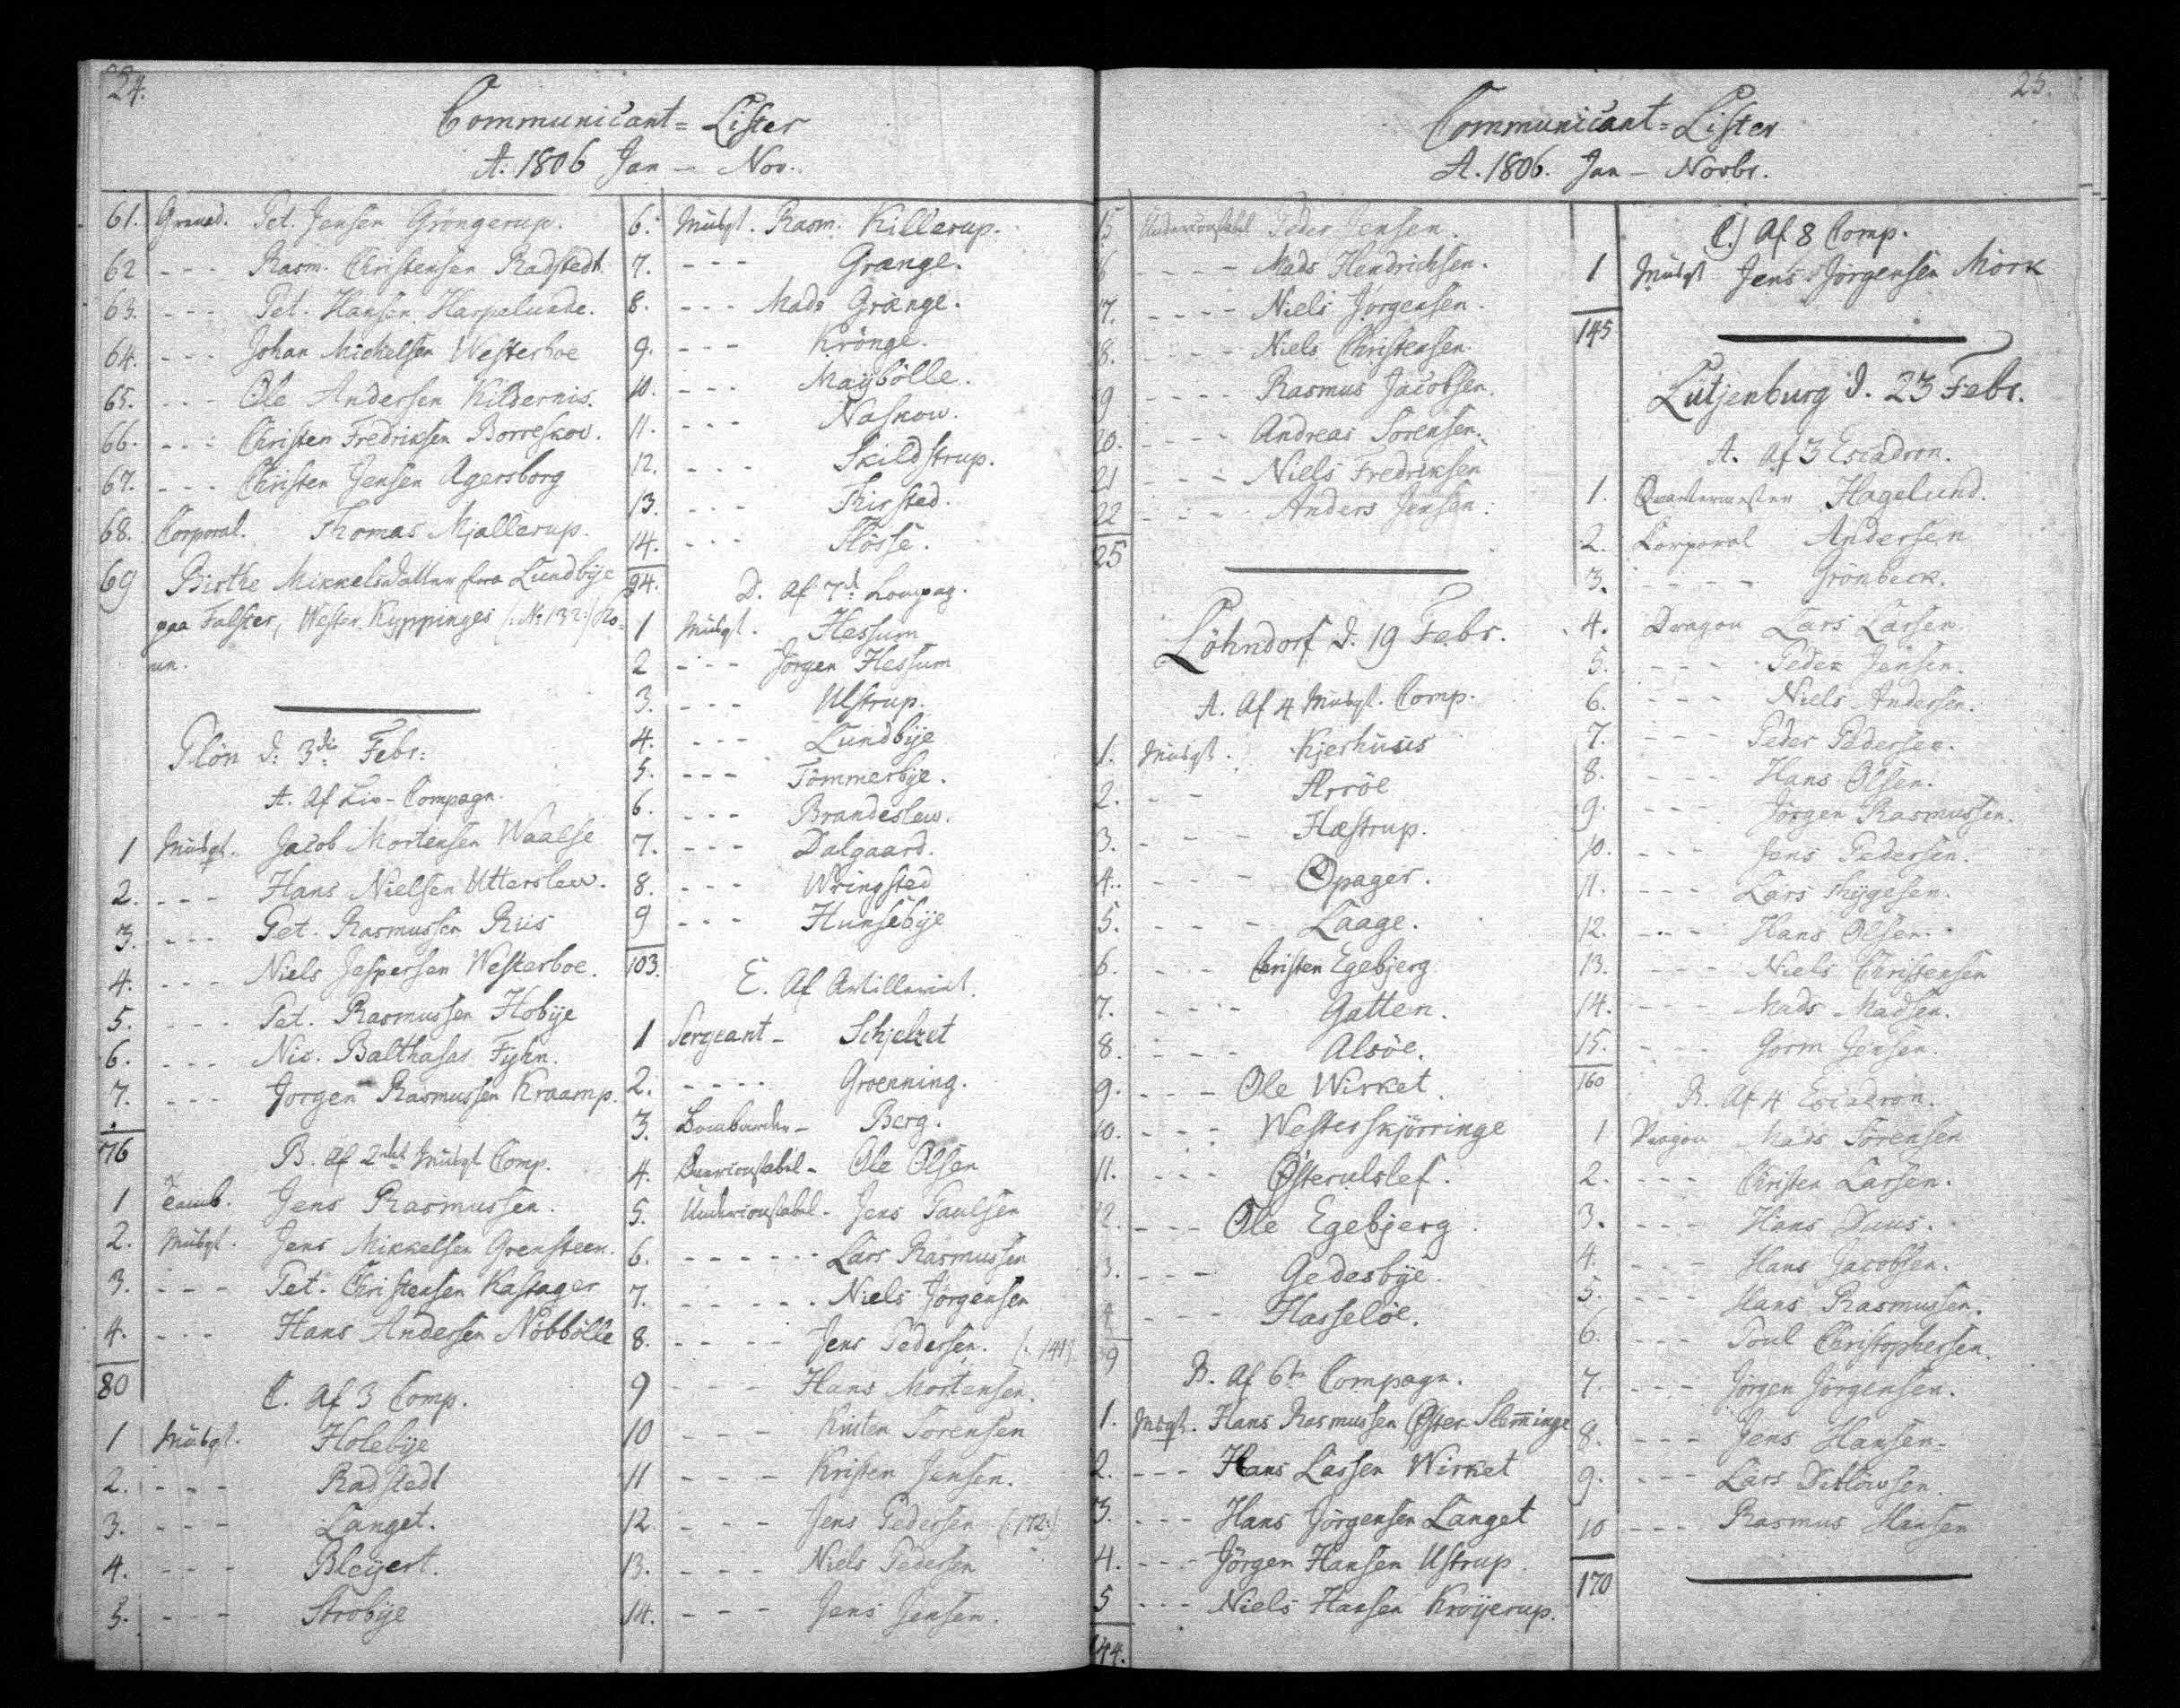 24.
Communicant = Lister
A: 1806 Jan — Nov.
61. Grenad. Pet. Jensen Gröngerup.
62 - - - Rasm. Christensen Radstedt
63. - - - Pet. Hansen Harpelunde.
64. - - - Johan Mickelsen Westerboe
65. - - - Ole Andersen Kildernis.
66. - - - Christen Fredriksen Borreskov.
67. - - - Christen Jensen Agersborg
68. Corporal. Thomas Mjallerup.
69 Birthe Mikkelsdatter fra Lundbÿe
paa Falster, Wester Kyppinges (: No 132 :) Ko-
ne.
Plön d: 3die Febr:
A. Af Liv-Compagn.
1 Musqt. Jacob Mortensen Waalse
2. - - - Hans Nielsen Utterslew.
3. - - - Pet. Rasmussen Riis
4. - - - Niels Jespersen Westerboe.
5. - - - Pet. Rasmussen Hobÿe
6. - - - Nic. Balthasar Fyhn.
7. - - - Jorgen Rasmussen Kraamp.
76
B. Af 2det Musqt Comp.
1 Tamb. Jens Rasmussen.
2. Musqt. Jens Mikkelsen Grensteen.
3. - - - Pet. Christensen Kastager
4. - - - Hans Andersen Nöbbölle
80
C. Af 3 Comp.
1 Musqt. Holebÿe
2. - - - Radstedt
3. - - - Langet.
4. - - - Bleÿert.
5. - - - Strobÿe
6. Musqt. Rasm. Killerup.
7. - - - Grange.
8. - - - Mads Grænge.
9. - - - Krönge.
10. - - - Maÿbölle.
11. - - - Naskow.
12. - - - Skildstrup.
13. - - - Thirsted.
14. - - - Flösse.
94.
D. Af 7de Compag.
1 Musqt. Hessum
2 - - - Jörgen Hessum
3. - - - Ulstrup.
4. - - - Lundbÿe
5. - - - Tömmerbÿe.
6. - - - Brandeslew.
7. - - - Dalgaard.
8. - - - Wringsted
9 - - - Hunsebÿe
103.
E. Af Artilleriet.
1 Sergeant - Schjelzet
2. - - - - Groenning.
3. Bombarder - Berg.
4. Overconstabel - Ole Olsen
5. Underconstabel - Jens Paulsen
6. - - - - - - Lars Rasmussen
7. - - - - - Niels Jörgensen
8. - - - - Jens Pedersen. (: 141 :)
9 - - - Hans Mortensen.
10 - - - Kristen Sorensen
11 - - - Kristen Jensen.
12. - - - Jens Pedersen (: 172 :)
13. - - - Niels Pedersen
14. - - - Jens Jensen.
25.
Communicant = Lister
A. 1806. Jan — Novbr.
15 Underconstabel Peder Jensen.
16 - - - - Mads Hendricksen.
17. - - - - Niels Jörgensen.
18. - - - - Niels Christensen.
19 - - - - Rasmus Jacobsen.
20. - - - - Andreas Sörensen.
21 - - - Niels Fredriksen
22 - - - Anders Jensen.
125
Löhndorf d. 19 Febr.
A. Af 4 Musqt. Comp.
1. Musqt. Kjerhuus
2. - - Arröe
3. - - - Hæstrup.
4. - - - Opager.
5. - - - Laage.
6. - - - Christen Egebjerg
7. - - - Gatten.
8. - - - Alsöe.
9. - - - Ole Wirket.
10. - - - Westerskjörringe
11. - - - Østerulslef.
12. - - - Ole Egebjerg.
13. - - - Gedesbÿe.
14 - - - Hasselöe.
139
B. Af 6te Compagn.
1. Musqt. Hans Rasmussen Øster Slemminge
2. - - - Hans Lassen Wirket
3. - - - Hans Jörgensen Langet
4. - - - Jörgen Hansen Ustrup.
5 - - - Niels Hansen Kroÿerup.
144.
C.) Af 8 Comp.
1 Musqt Jens Jörgensen Mörk
145
Lütjenburg d. 23 Febr.
A. Af 3 Escadron.
1. Qvartermester Hagelund.
2. Corporal Andersen
3. - - - - Grönbeck.
4. Dragon Lars Larsen.
5. - - - Peder Jensen.
6. - - - Niels Andersen.
7. - - - Peder Pedersen.
8. - - - Hans Olsen.
9. - - - Jörgen Rasmussen.
10. - - - Jens Pedersen.
11. - - - Lars Thÿgesen.
12. - - - Hans Olsen.
13. - - - Niels Christensen
14. - - - Mads Madsen.
15. - - - Gorm Jensen.
160
B. Af 4 Escadron.
1 Dragon Mads Sorensen
2. - - - Christen Larsen.
3. - - - Hans Duus.
4. - - - Hans Jacobsen.
5. - - - Hans Rasmussen.
6. - - - Poul Christophersen.
7. - - - Jörgen Jörgensen.
8. - - - Jens Hansen.
9. - - - Lars Ditlöwsen.
10 - - - Rasmus Hansen
170